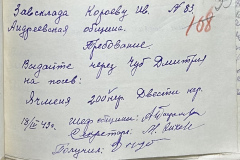 Завсклада Короеву Ив. № 83
Андреевская община 168
Требование.
Выдайте через Чуб Дмитрия
на посев:
Ячменя 200 кгр. Двести кгр.
13/III 43г. Пред. общины:
Секретарь
Получил: Чуб